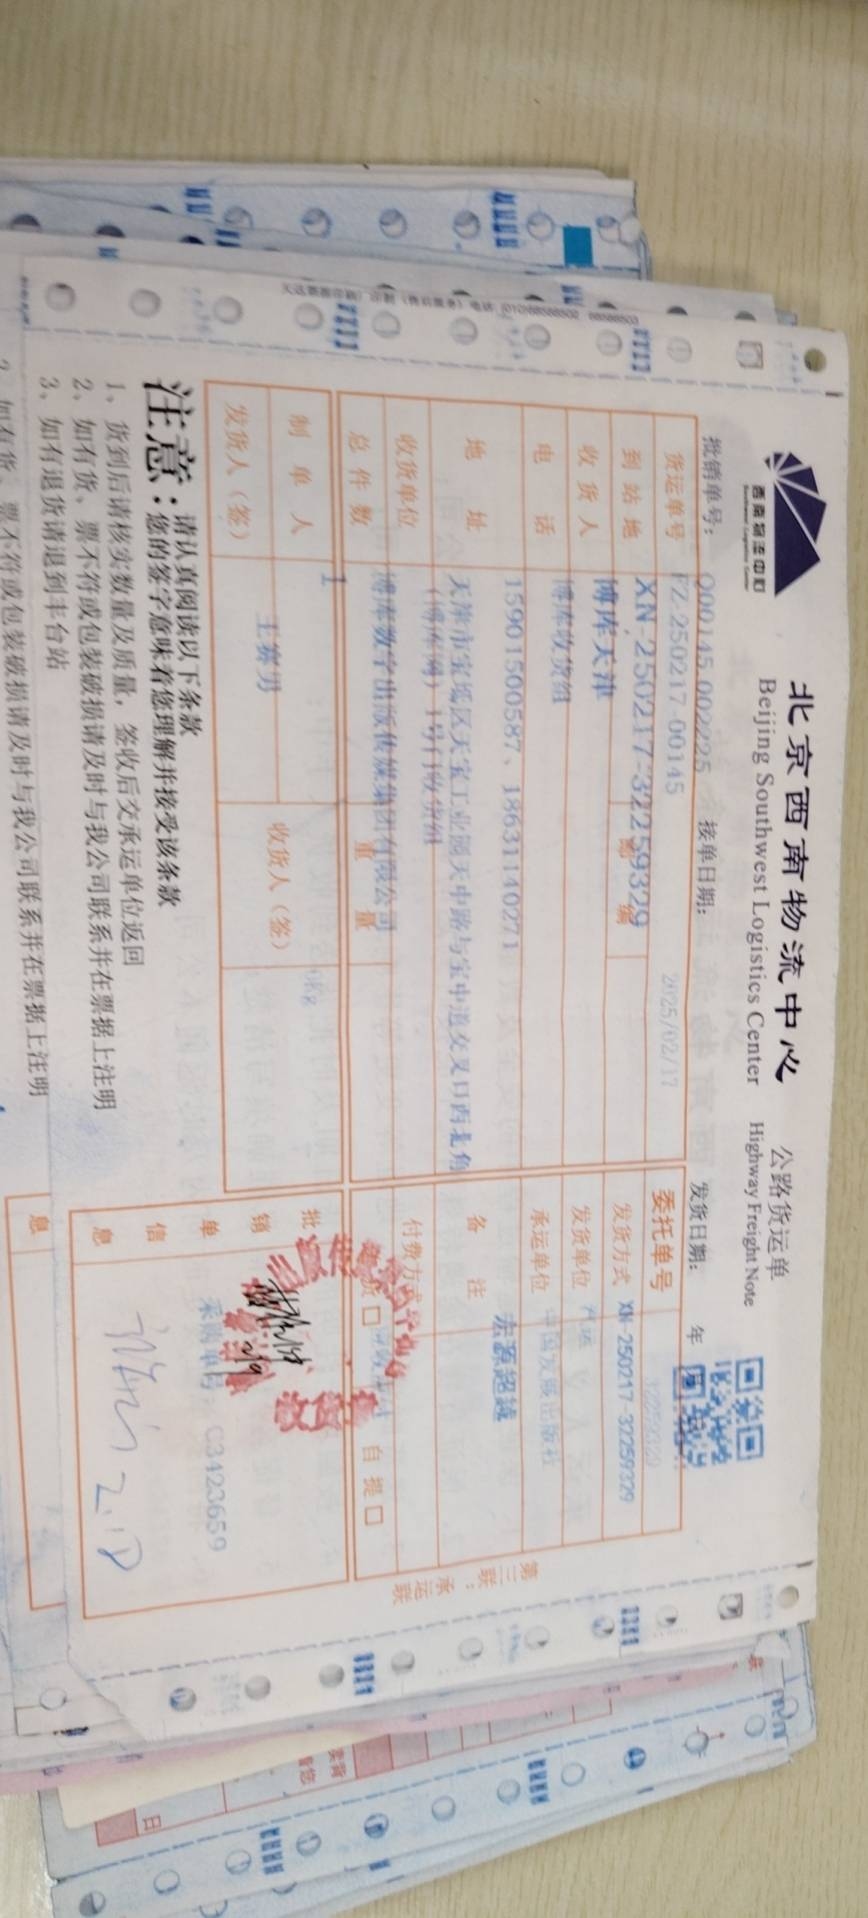 西南物流中心
Southwest Logistics Center
北京西南物流中心
公路货运单
Beijing Southwest Logistics Center
Highway Freight Note
批销单号: Q00145 002225 接单日期: 发货日期: 年
货运单号 PZ-250217-00145 2025/02/17
委托单号 32259329
XN-250217-32259329
到站地 博库天津 邮编
发货方式 XN-250217-32259329
收货人 博库收货组
发货单位 汽运
中国发展出版社
电话 15901500587、18631140271
承运单位 宏源超越
地址 天津市宝坻区天宝工业园天中路与宝中道交叉口西北角
(博库网) 1号门收货组
备注
收货单位 博库数字出版传媒集团有限公司
付费方式
总件数 1 重量 0Kg
自提
制单人 王赛男
收货人(签)
发货人(签)
批销单信息
采购单号: C3423659
第三联: 承运联
注意: 请认真阅读以下条款
您的签字意味着您理解并接受该条款
1、货到后请核实数量及质量, 签收后交承运单位返回
2、如有货、票不符或包装破损请及时与我公司联系并在票据上注明
3、如有退货请退到丰台站
2、如有货、票不符或包装破损请及时与我公司联系并在票据上注明
息